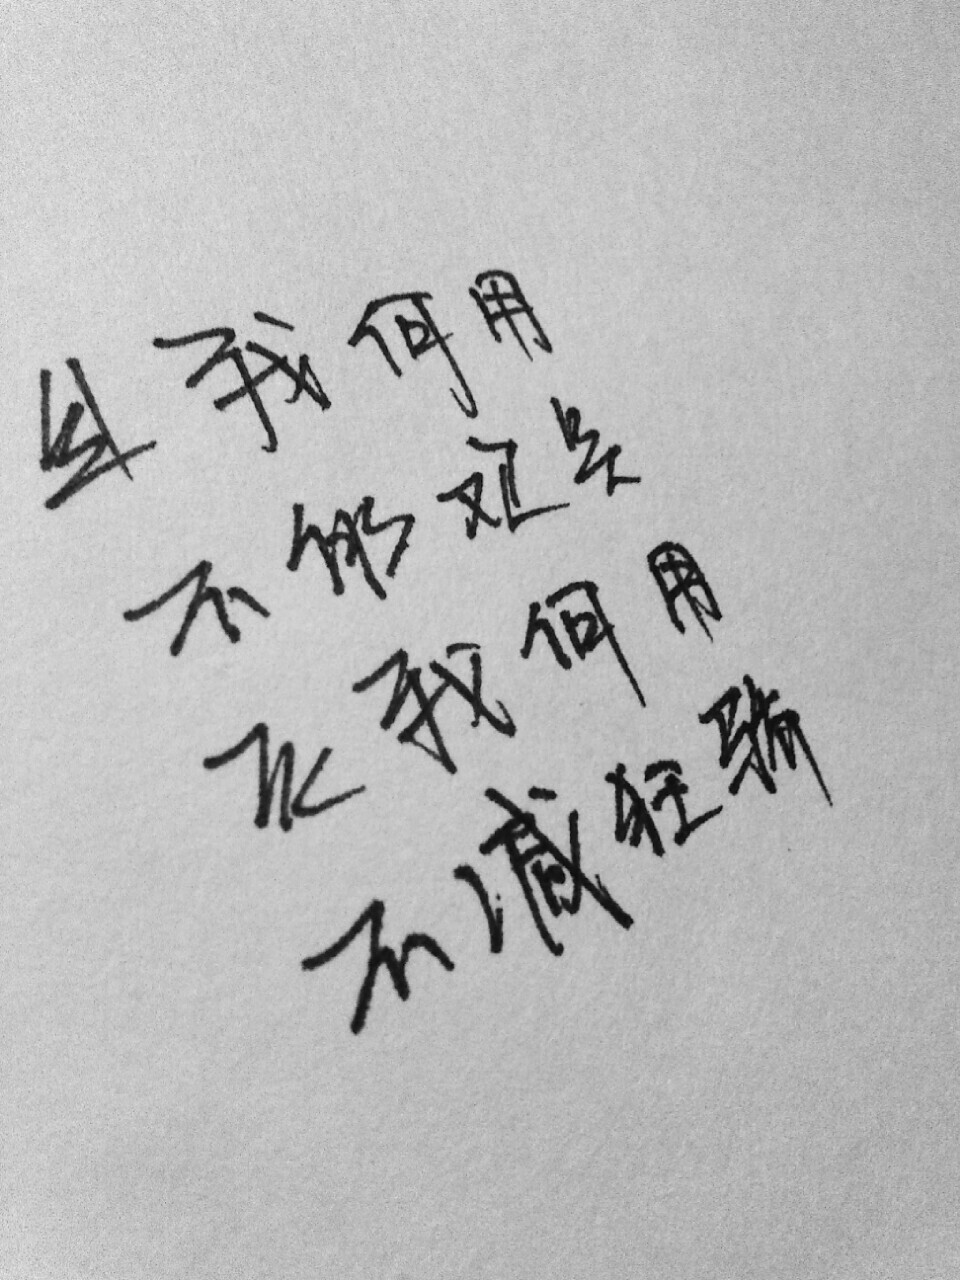 生我何用
不能欢笑
灭我何用
不减狂骄